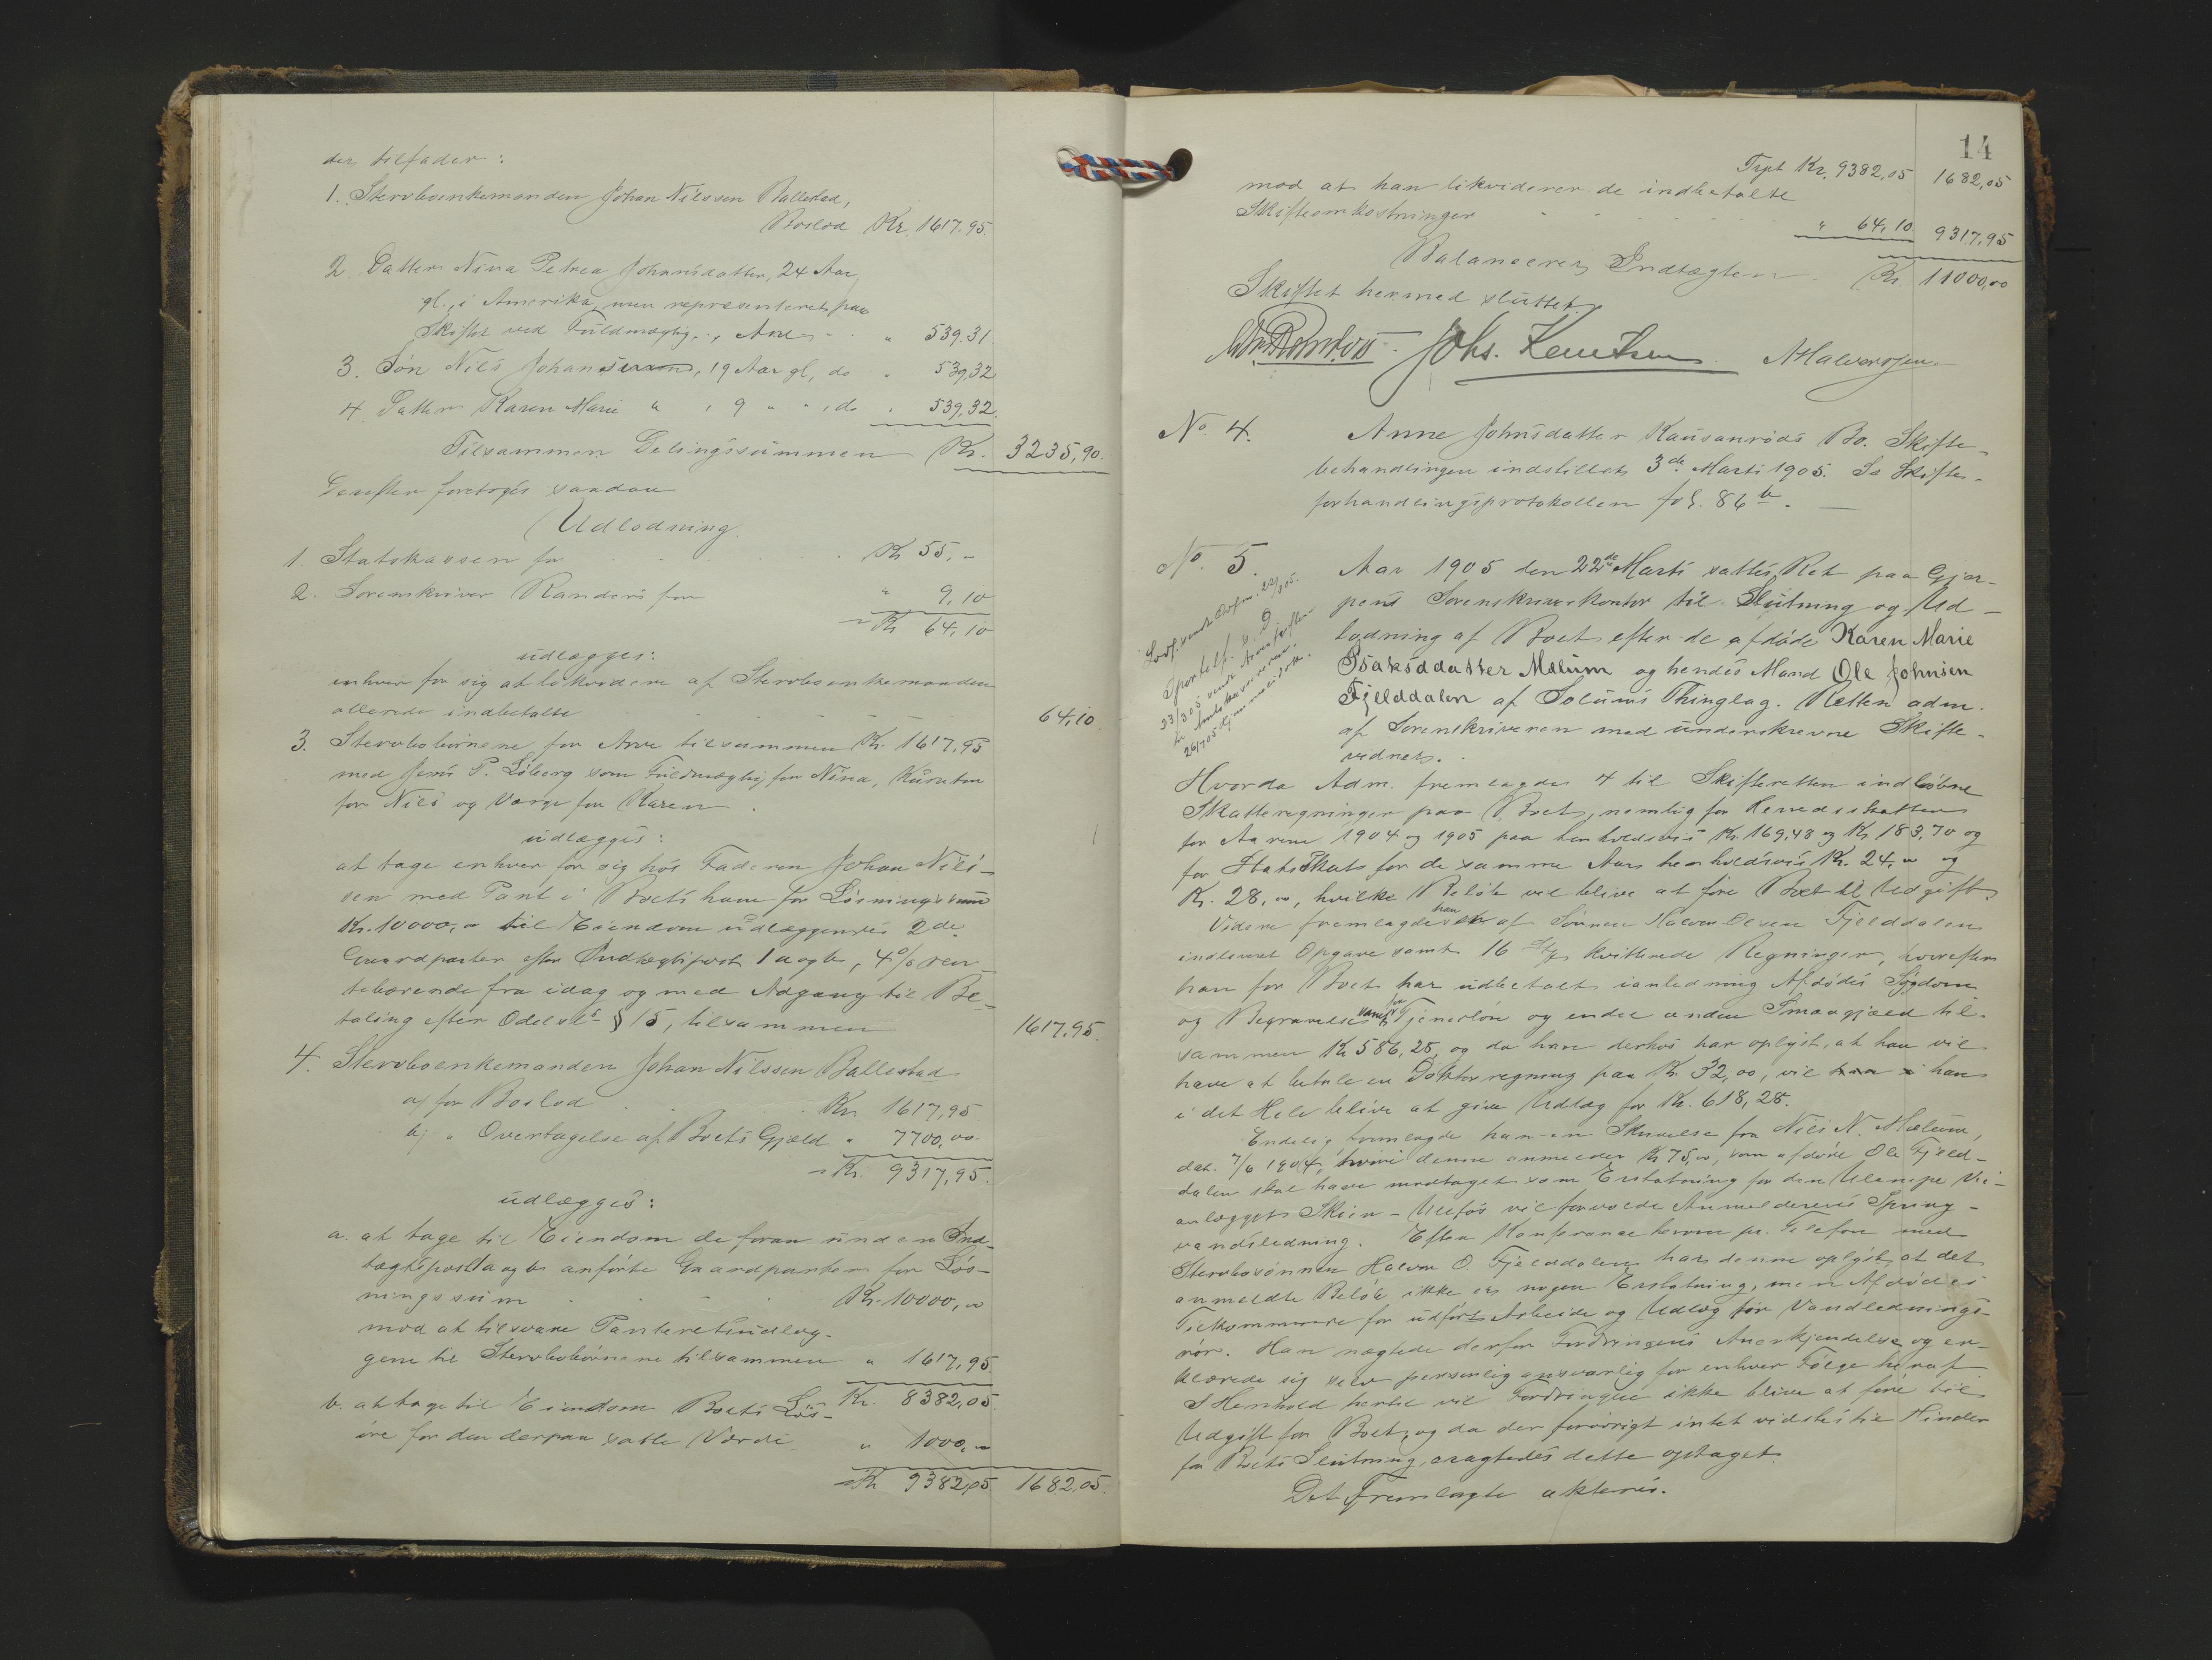 der tilfader:
1. Stervboenkemanden Johan Nilssen Ballestad,
Boslod Kr. 1617.95.
2. Datter Nina Petrea Johansdatter, 24 Aar
gl., i Amerika, men repræsenteret paa
Skiftet ved Fuldmægtig, Arv " 539.31
3. Søn Nils Johanssen, 19 Aar gl, do " 539,32
4. Datter Karen Marie " , 9 " " , do " 539,32.
Tilsammen Delingssummen Kr. 3235,90.
Derefter foretoges saadan
Udlodning.
1. Statskassen for Kr 55, "
2. Sorenskriver Randers for " 9,10
= Kr 64,10
udlægges:
enhver for sig at likvidere af Stervboenkemanden
allerede indbetalte 64,10.
3. Stervbobørnene for Arv tilsammen Kr. 1617,95
med Jens P. Löberg som Fuldmægtig for Nina, Kurator
for Nils og Værge for Karen.
udlægges:
at tage enhver for sig hos Faderen Johan Nils-
sen med Pant i Boets ham for Løsningssum
Kr. 10000, " til Eiendom udlæggendes 2de
Gaardparter efter Indtægtspost 1 a og b, 4% ren-
tebærende fra idag og med Adgang til Be-
taling efter Odelsl. § 15, tilsammen 1617.95.
4. Stervboenkemanden Johan Nilssen Ballestad
a) for Boslod Kr. 1617,95
b) " Overtagelse af Boets Gjæld " 7700,00
= Kr. 9317,95.
udlægges:
a. at tage til Eiendom de foran under Ind-
tægtspost 1 a og b anførte Gaardparter for Løs-
ningssum Kr. 10000, "
mod at tilsvare Panteretsudlæg-
gene til Stervbobørnene tilsammen " 1617,95
Kr. 8382,05.
b. at tage til Eiendom Boets Løs-
øre for den derpaa satte Værdi " 1000, "
= Kr 9382,05 1682,05.
14
Trpt Kr. 9382,05 1682,05
mod at han likviderer de indbetalte
Skifteomkostninger " 64,10 9317,95
Balancerer Indtægten Kr. 11000,00
Skiftet hermed sluttet.
Johs. Knutsen. A Halvorsen.
No. 4. Anne Johnsdatter Kausanröds Bo. Skifte-
behandlingen indstillet 3de Marts 1905. Se Skifte-
forhandlingsprotokollen fol. 86 b. —
No. 5. Aar 1905 den 22de Marts sattes Ret paa Gjer-
pens Sorenskriverkontor til Slutning og Ud-
lodning af Boet efter de afdøde Karen Marie
Isaksdatter Mælum og hendes Mand Ole Johnsen
Fjelddalen af Solums Thinglag. Retten adm.
af Sorenskriveren med underskrevne Skifte-
vidner.
Hvorda Adm. fremlagde 4 til Skifteretten indløbne
Skatteregninger paa Boet, nemlig for Herredsskatten
for Aarene 1904 og 1905 paa henholdsvis Kr. 169,48 og Kr. 183,70 og
for Statsskat for de samme Aar henholdsvis Kr. 24, " og
Kr. 28, ", hvilke Beløb vil blive at føre Boet til Udgift.
Videre fremlagde han en af Sønnen Halvor Olsen Fjelddalen
indleveret Opgave samt 16 Stk kvitterede Regninger, hvorefter
han for Boet har udbetalt i anledning Afdødes Sygdom
og Begravelse samt for Tjenerløn og endel anden Smaagjæld til-
sammen Kr 586,28, og da han derhos har oplyst, at han vil
have at betale en Doktorregning paa Kr. 32,00, vil han
i det Hele blive at give Udlæg for Kr. 618,28.
Endelig fremlagde han en Skrivelse fra Nils N. Mælum,
dat. 7/6 1904, hvori denne anmelder Kr 75,00, som afdøde Ole Fjeld-
dalen skal have modtaget som Erstatning for den Ulempe Vei-
anlægget Skien - Ulefos vil forvolde Anmelderens Spring-
vandsledning. Efter Konferance herom pr. Telefon med
Stervbosønnen Halvor O. Fjelddalen har denne oplyst, at det
anmeldte Beløb ikke er nogen Erstatning, men Afdødes
Tilkommende for udført Arbeide og Udlæg for Vandlednings-
rør. Han nægtede derfor Fordringens Anerkjendelse og er-
klærede sig selv personlig ansvarlig for enhver Følge heraf.
I Henhold hertil vil Fordringen ikke blive at føre til
Udgift for Boet, og da der forøvrigt intet vidstes til Hinder
for Boets Slutning, eragtedes dette optaget.
Det fremlagte akteres.